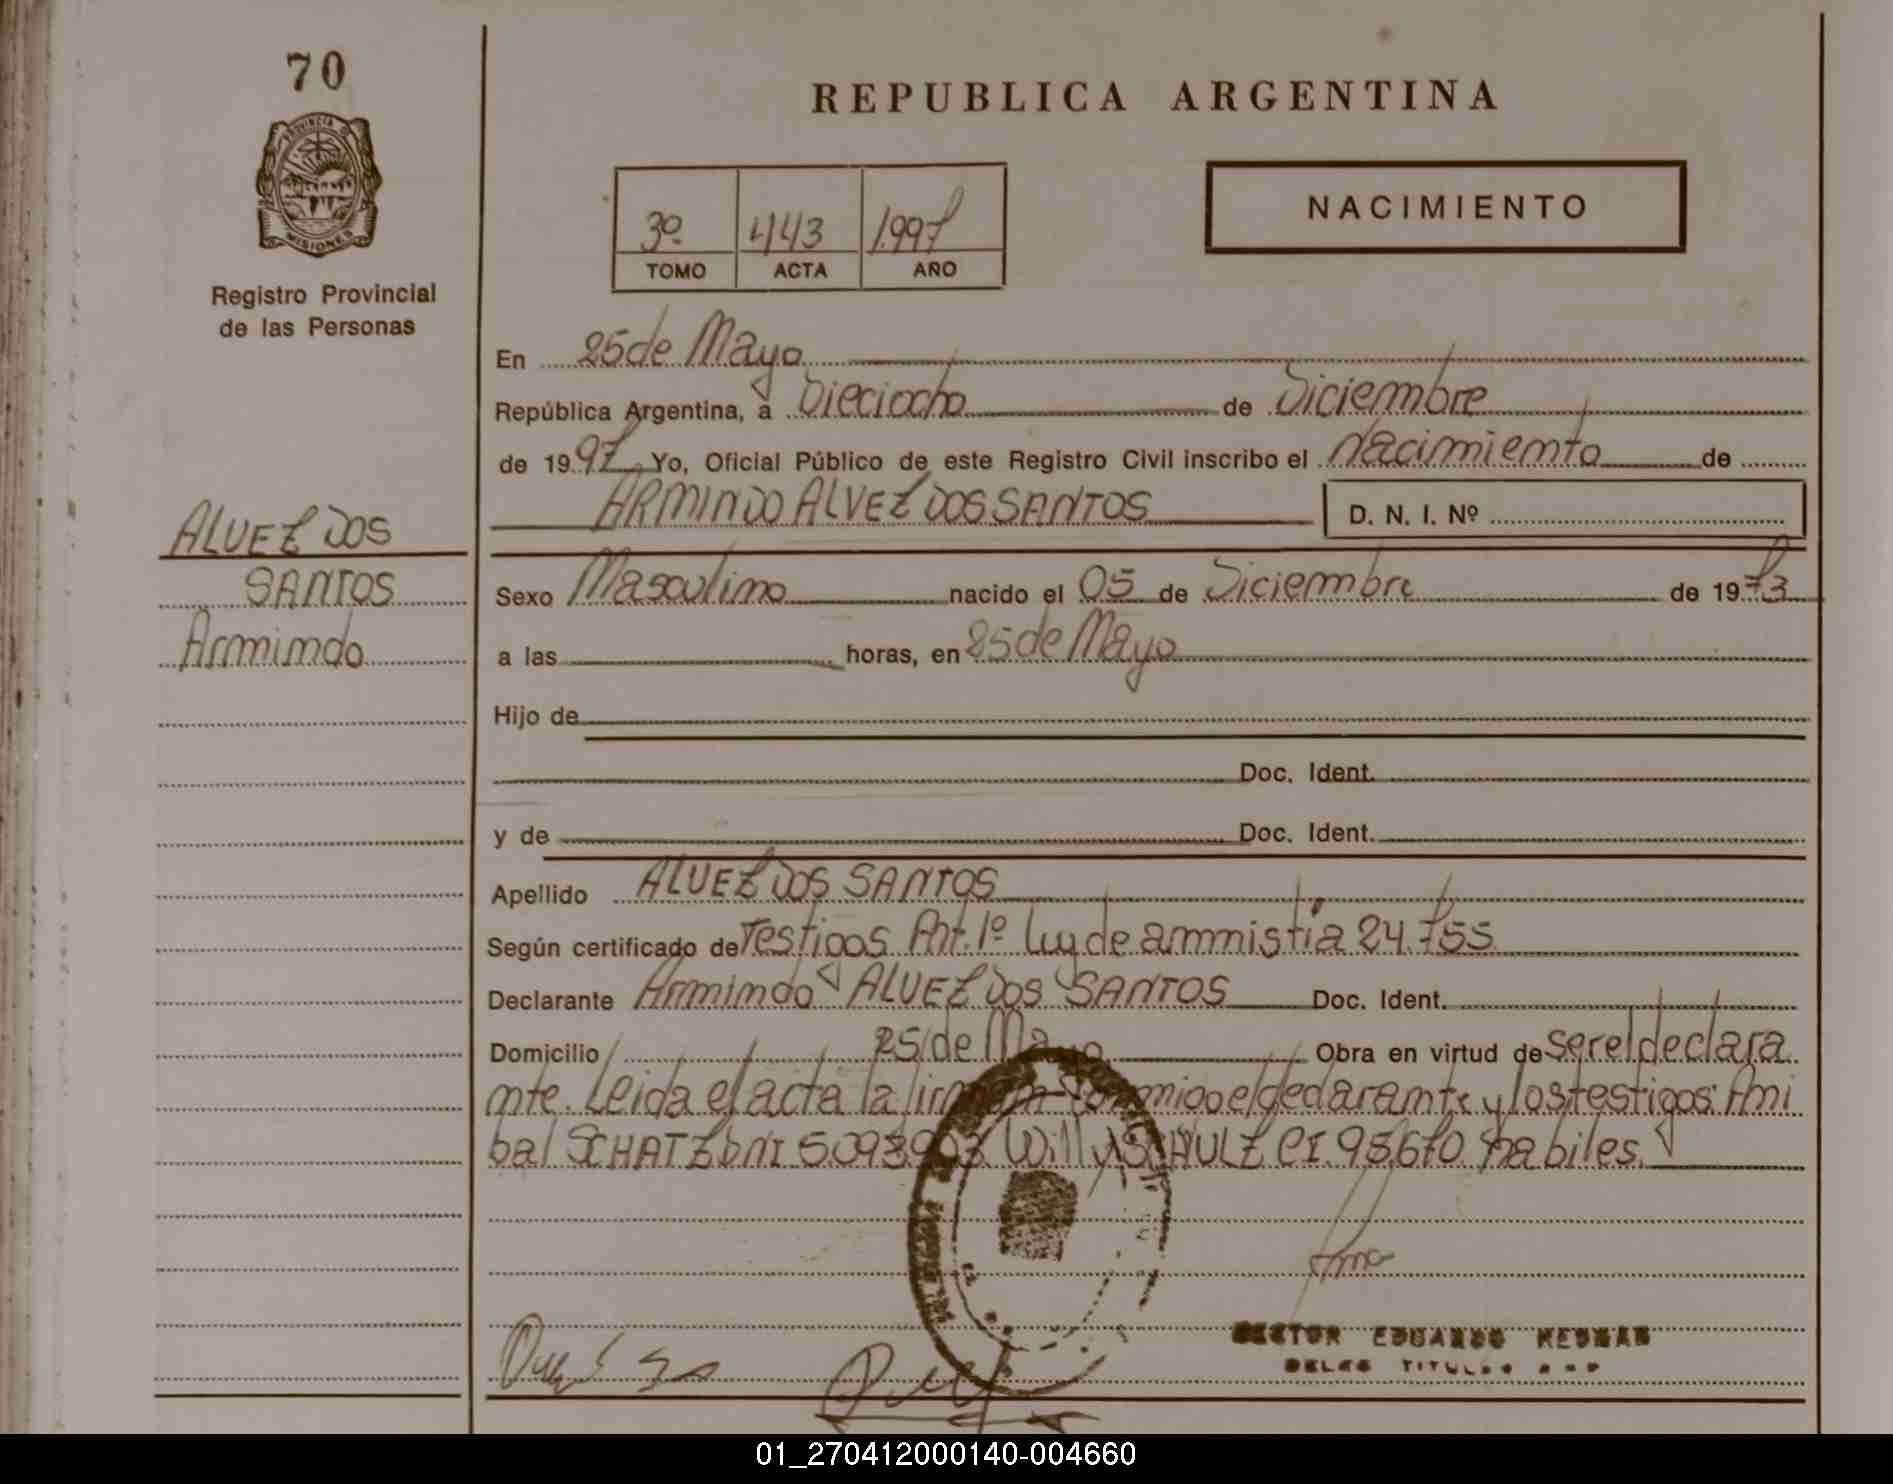 70
REPUBLICA ARGENTINA
PROVINCIA D
MISIONES
3º 443 1.997
TOMO ACTA AÑO
NACIMIENTO
Registro Provincial
de las Personas
En 25 de Mayo
República Argentina, a Dieciocho de Diciembre
de 1997 Yo, Oficial Público de este Registro Civil inscribo el Nacimiento de
ARMINDO ALVEZ DOS SANTOS D. N. I. Nº
ALVEZ DOS
SANTOS
Armindo
Sexo Masculino nacido el 05 de Diciembre de 1973
a las horas, en 25 de Mayo
Hijo de
Doc. Ident.
y de Doc. Ident.
Apellido ALVEZ DOS SANTOS
Según certificado de Testigos Art. 1º Ley de amnistia 24.755
Declarante Armindo ALVEZ DOS SANTOS Doc. Ident.
Domicilio 25 de Mayo Obra en virtud de ser el declara
nte. Leida el acta la firman conmigo el declarante y los testigos: Ani
bal SCHATZ DNI 5093993 Willy SCHULZ CI. 95.670 habiles.
HECTOR EDUARDO